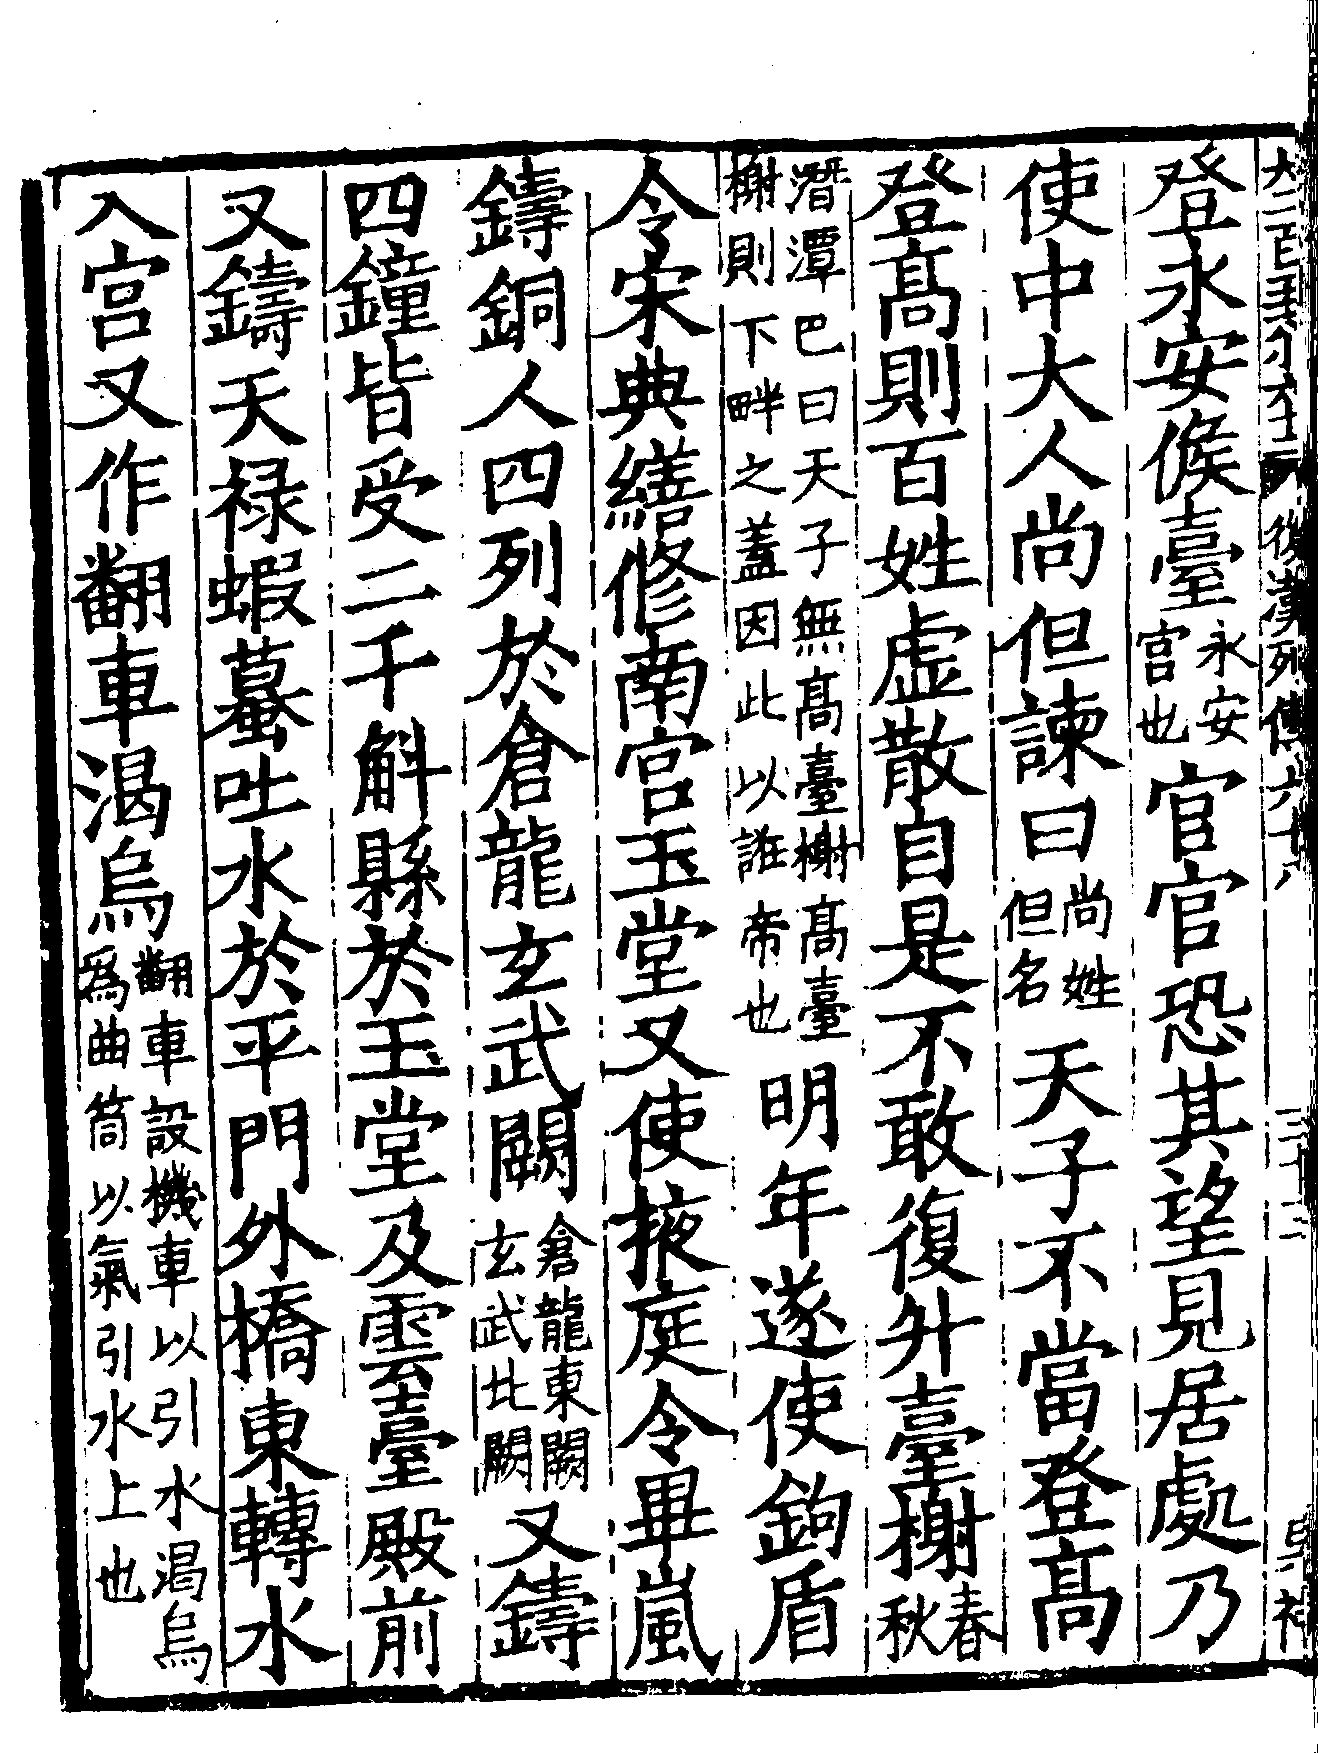 後漢列傳六十八
登永安候臺永安宮也官官恐其望見居處乃
使中大人尚但諫曰尚姓但名天子不當登髙
登髙則百姓虛散自是不敢復升臺榭春秋
潛潭巴曰天子無髙臺榭髙臺榭則下畔之蓋因此以誑帝也明年遂使鉤盾
令宋典繕修南宮玉堂又使掖庭令畢嵐
鑄銅人四列於倉龍玄武闕倉龍東闕玄武北闕又鑄
四鐘皆受二千斛縣於玉堂及雲臺殿前
又鑄天禄蝦蟇吐水於平門外橋東轉水
入宮又作翻車渴烏翻車設機車以引水渴烏為曲筒以氣引水上也